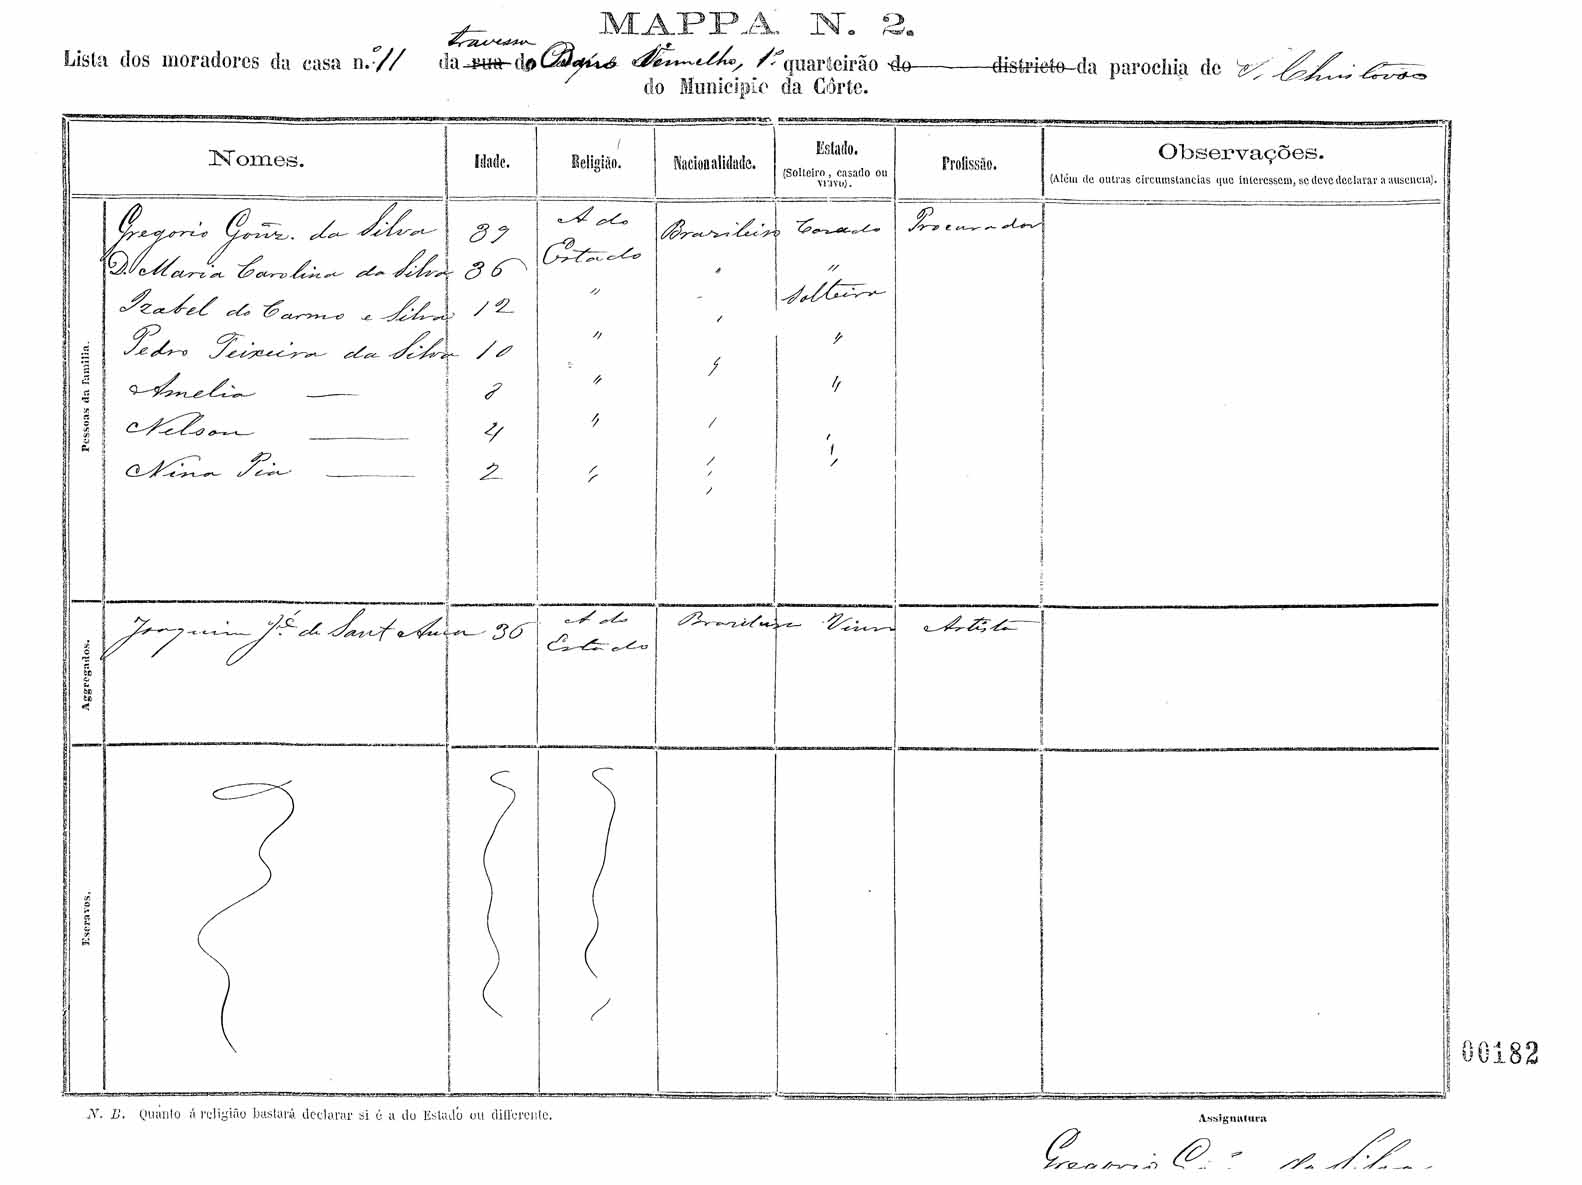 MAPPA N. 2.
travessa
Lista dos moradores da casa n.º 11 da rua do Barro Vermelho, 1º quarteirão do districto da parochia de S. Christovão
do Municipio da Côrte.
Nomes. Idade. Religião. Nacionalidade. Estado. (Solteiro, casado ou viuvo). Profissão. Observações. (Além de outras circumstancias que interessem, se deve declarar a ausencia).
Pessoas da familia.
Gregorio Gonz. da Silva 39 A do Estado Brazileiro Casado Procurador
D. Maria Carolina da Silva 36 " "
Izabel do Carmo e Silva 12 " " Solteira
Pedro Teixeira da Silva 10 " " "
Amelia — 8 " " "
Nelson — 4 " " "
Nina Pia — 2 " " "
Aggregados.
Joaquim Jé de Sant Anna 36 A do Estado Brazileiro Viuvo Artista
Escravos.
00182
N. B. Quanto á religião bastará declarar si é a do Estado ou differente.
Assignatura
Gregorio da Silva